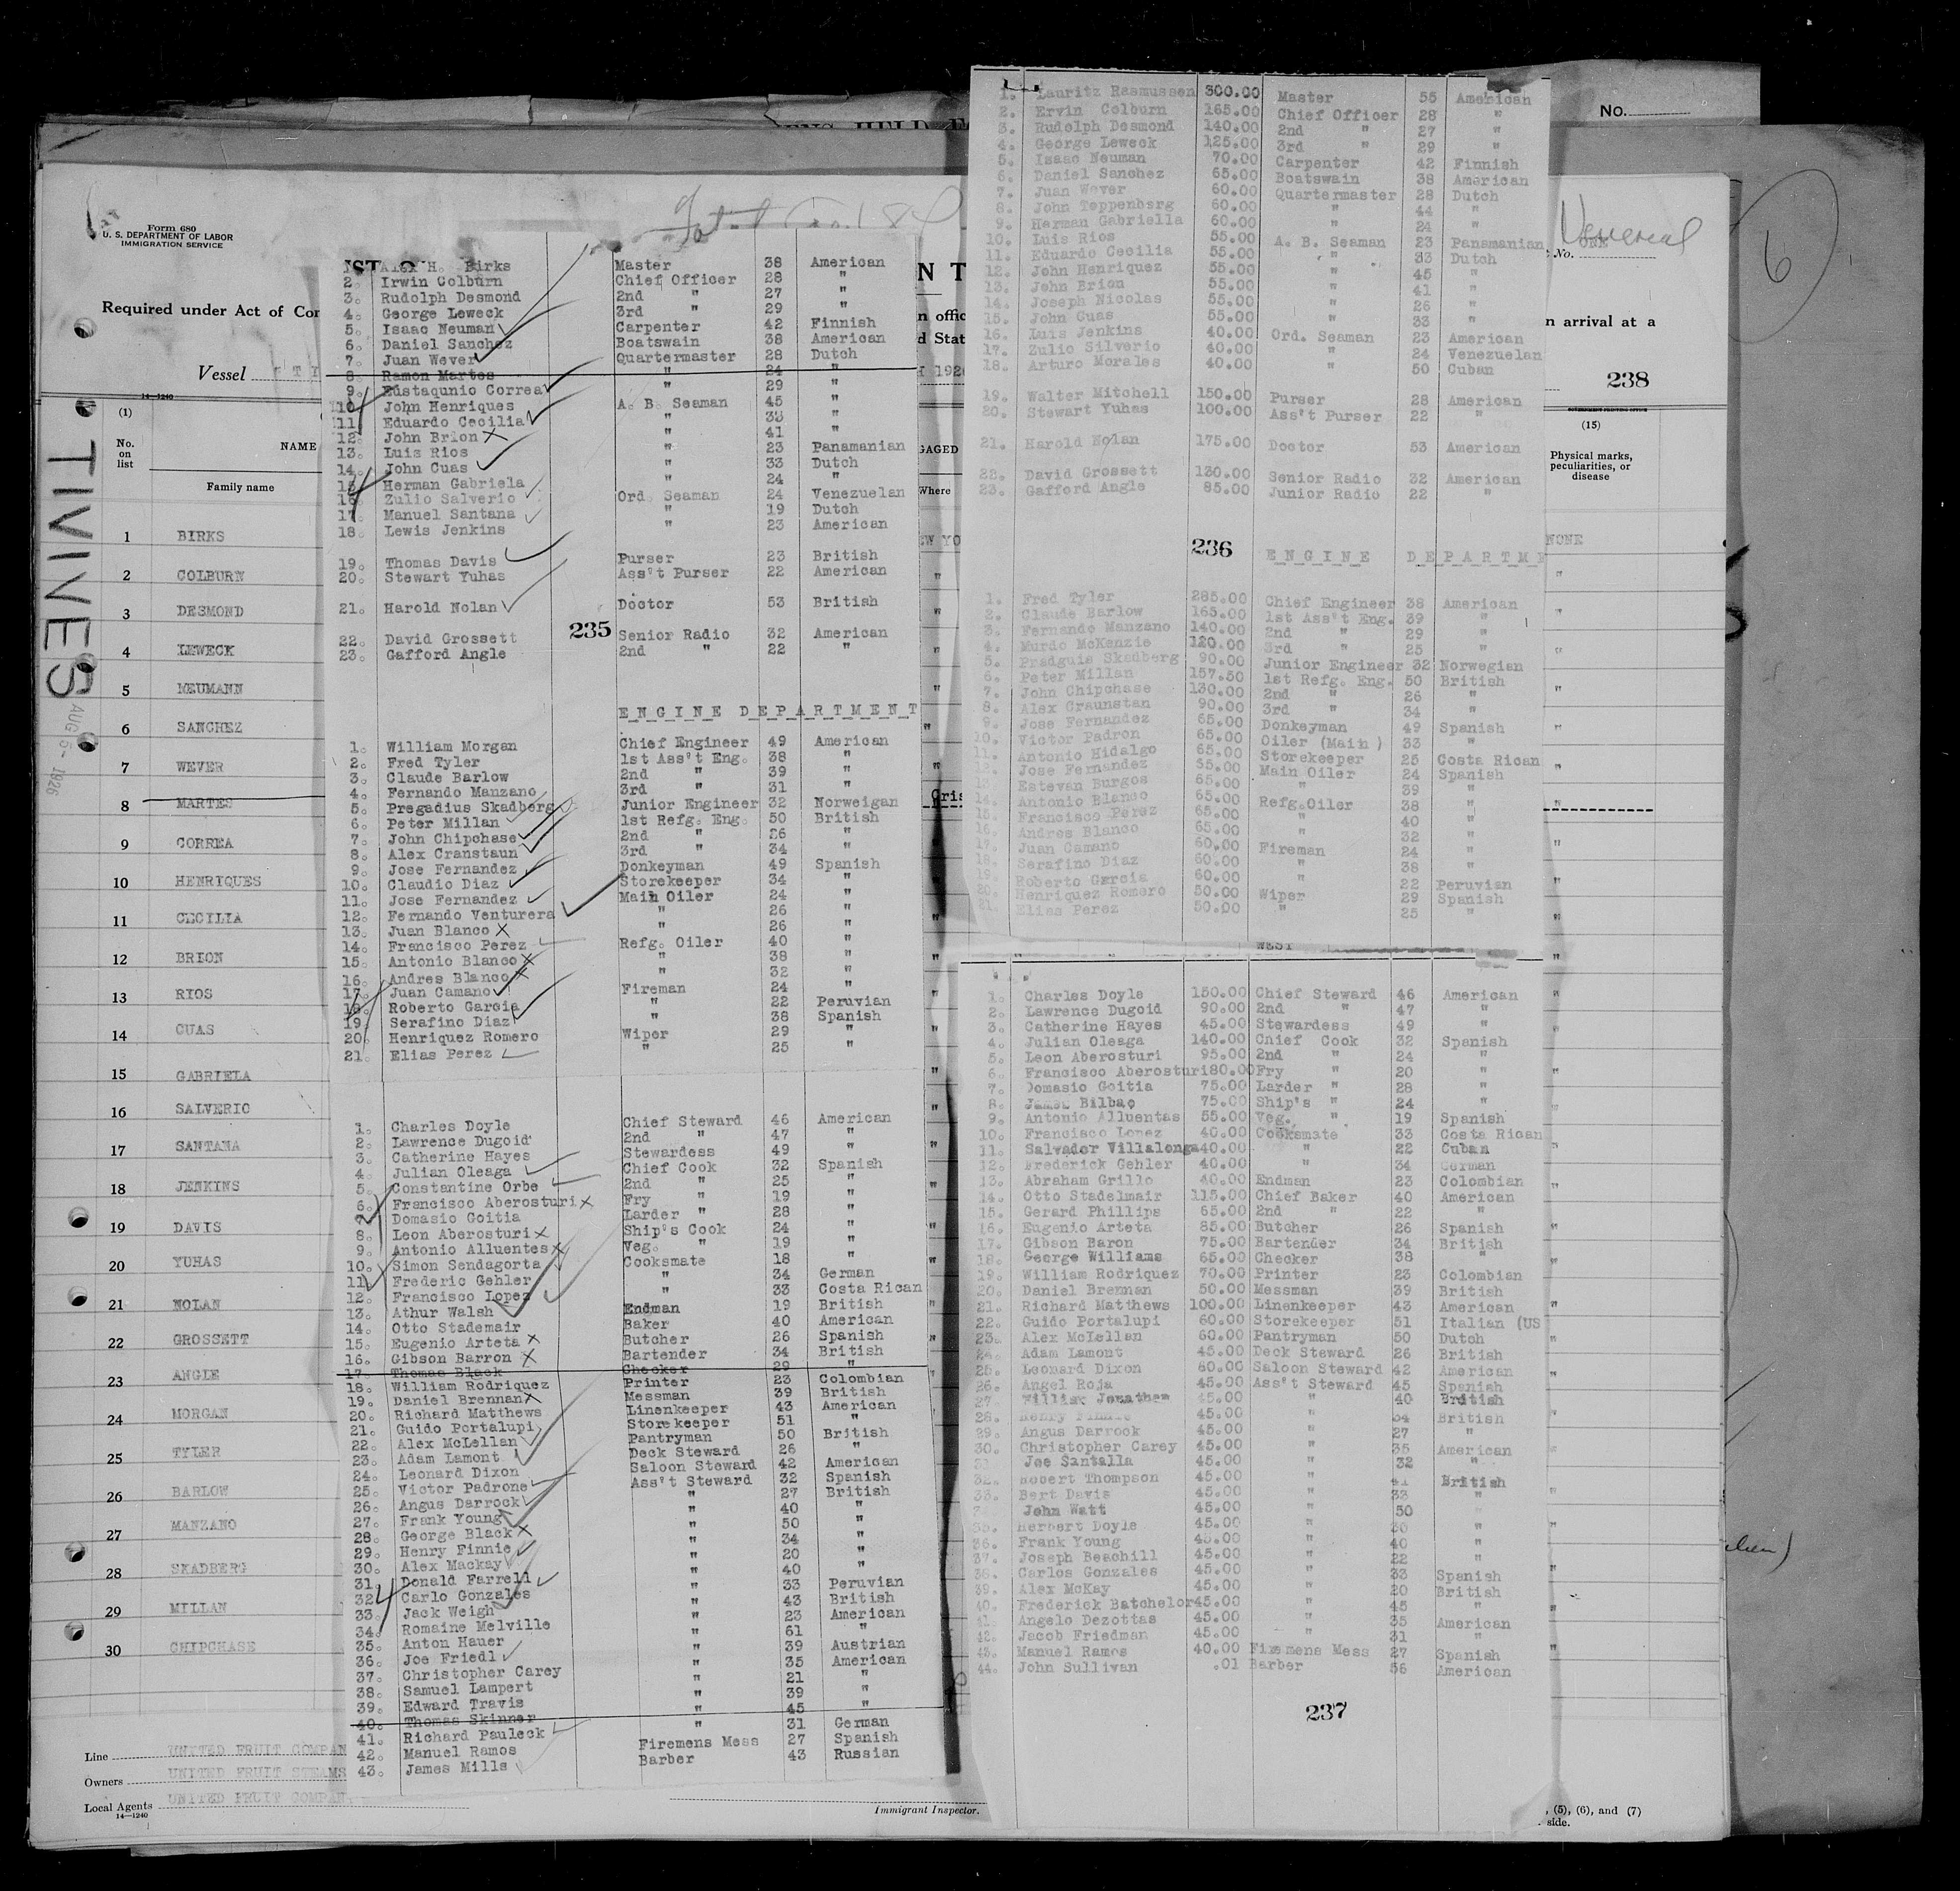 No.
Form 680
U. S. DEPARTMENT OF LABOR
IMMIGRATION SERVICE
Required under Act of Con
Vessel
n arrival at a
238
14—1240
(1)
No. on list
NAME
Family name
(15)
Physical marks, peculiarities, or disease
TIVIVES
AUG 5- 1926
1 BIRKS
2 COLBURN
3 DESMOND
4 LEWECK
5 NEUMANN
6 SANCHEZ
7 WEVER
8 MARTES
9 CORREA
10 HENRIQUES
11 CECILIA
12 BRION
13 RIOS
14 CUAS
15 GABRIELA
16 SALVERIO
17 SANTANA
18 JENKINS
19 DAVIS
20 YUHAS
21 NOLAN
22 GROSSETT
23 ANGLE
24 MORGAN
25 TYLER
26 BARLOW
27 MANZANO
28 SKADBERG
29 MILLAN
30 CHIPCHASE
Line UNITED FRUIT COMPAN
Owners UNITED FRUIT STEAMS
Local Agents UNITED FRUIT COMPAN
14—1240
H. Birks Master 38 American
2. Irwin Colburn Chief Officer 28 "
3. Rudolph Desmond 2nd " 27 "
4. George Leweck 3rd " 29 "
5. Isaac Neuman Carpenter 42 Finnish
6. Daniel Sanchez Boatswain 38 American
7. Juan Wever Quartermaster 28 Dutch
8. Ramon Martes " 24 "
9. Eustaqunio Correa " 29 "
10. John Henriques A. B. Seaman 45 "
11. Eduardo Cecilia " 33 "
12. John Brion " 41 "
13. Luis Rios " 23 Panamanian
14. John Cuas " 33 Dutch
15. Herman Gabriela " 24 "
16. Zulio Salverio Ord. Seaman 24 Venezuelan
17. Manuel Santana " 19 Dutch
18. Lewis Jenkins " 23 American
19. Thomas Davis Purser 23 British
20. Stewart Yuhas Ass't Purser 22 American
21. Harold Nolan Doctor 53 British
235
22. David Grossett Senior Radio 32 American
23. Gafford Angle 2nd " 22 "
ENGINE DEPARTMENT
1. William Morgan Chief Engineer 49 American
2. Fred Tyler 1st Ass't Eng. 38 "
3. Claude Barlow 2nd " 39 "
4. Fernando Manzano 3rd " 31 "
5. Pregadius Skadberg Junior Engineer 32 Norweigan
6. Peter Millan 1st Refg. Eng. 50 British
7. John Chipchase 2nd " 26 "
8. Alex Cranstaun 3rd " 34 "
9. Jose Fernandez Donkeyman 49 Spanish
10. Claudio Diaz Storekeeper 34 "
11. Jose Fernandez Main Oiler 24 "
12. Fernando Venturera " 26 "
13. Juan Blanco " 26 "
14. Francisco Perez Refg. Oiler 40 "
15. Antonio Blanco " 38 "
16. Andres Blanco " 32 "
17. Juan Camano Fireman 24 "
18. Roberto Garcia " 22 Peruvian
19. Serafino Diaz " 38 Spanish
20. Henriquez Romero Wiper 29 "
21. Elias Perez " 25 "
1. Charles Doyle Chief Steward 46 American
2. Lawrence Dugoid 2nd " 47 "
3. Catherine Hayes Stewardess 49 "
4. Julian Oleaga Chief Cook 32 Spanish
5. Constantine Orbe 2nd " 25 "
6. Francisco Aberosturi Fry " 19 "
7. Domasio Goitia Larder " 28 "
8. Leon Aberosturi Ship's Cook 24 "
9. Antonio Alluentes Veg. " 19 "
10. Simon Sendagorta Cooksmate 18 "
11. Frederic Gehler " 34 German
12. Francisco Lopez " 33 Costa Rican
13. Athur Walsh Endman 19 British
14. Otto Stademair Baker 40 American
15. Eugenio Arteta Butcher 26 Spanish
16. Gibson Barron Bartender 34 British
17. Thomas Black Checker 29 "
18. William Rodriquez Printer 23 Colombian
19. Daniel Brennan Messman 39 British
20. Richard Matthews Linenkeeper 43 American
21. Guido Portalupi Storekeeper 51 "
22. Alex McLellan Pantryman 50 British
23. Adam Lamont Deck Steward 26 "
24. Leonard Dixon Saloon Steward 42 American
25. Victor Padrone Ass't Steward 32 Spanish
26. Angus Darrock " 27 British
27. Frank Young " 40 "
28. George Black " 50 "
29. Henry Finnie " 34 "
30. Alex Mackay " 20 "
31. Donald Farrell " 40 "
32. Carlo Gonzales " 33 Peruvian
33. Jack Weigh " 43 British
34. Romaine Melville " 23 American
35. Anton Hauer " 61 "
36. Joe Friedl " 39 Austrian
37. Christopher Carey " 35 American
38. Samuel Lampert " 21 "
39. Edward Travis " 39 "
40. Thomas Skinner " 45 "
41. Richard Pauleck " 31 German
42. Manuel Ramos Firemens Mess 27 Spanish
43. James Mills Barber 43 Russian
Immigrant Inspector.
1. Lauritz Rasmussen 300.00 Master 55 American
2. Ervin Colburn 165.00 Chief Officer 28 "
3. Rudolph Desmond 140.00 2nd " 27 "
4. George Leweck 125.00 3rd " 29 "
5. Isaac Neuman 70.00 Carpenter 42 Finnish
6. Daniel Sanchez 65.00 Boatswain 38 American
7. Juan Wever 60.00 Quartermaster 28 Dutch
8. John Toppenberg 60.00 " 44 "
9. Herman Gabriella 60.00 " 24 "
10. Luis Rios 55.00 A. B. Seaman 23 Panamanian
11. Eduardo Cecilia 55.00 " 33 Dutch
12. John Henriquez 55.00 " 45 "
13. John Brion 55.00 " 41 "
14. Joseph Nicolas 55.00 " 26 "
15. John Cuas 55.00 " 33 "
16. Luis Jenkins 40.00 Ord. Seaman 23 American
17. Zulio Silverio 40.00 " 24 Venezuelan
18. Arturo Morales 40.00 " 50 Cuban
19. Walter Mitchell 150.00 Purser 28 American
20. Stewart Yuhas 100.00 Ass't Purser 22 "
21. Harold Nolan 175.00 Doctor 53 American
22. David Grossett 130.00 Senior Radio 32 American
23. Gafford Angle 85.00 Junior Radio 22 "
236
ENGINE DEPARTME
1. Fred Tyler 285.00 Chief Engineer 38 American
2. Claude Barlow 165.00 1st Ass't Eng. 39 "
3. Fernando Manzano 140.00 2nd " 29 "
4. Murdo McKenzie 120.00 3rd " 25 "
5. Pradguis Skadberg 90.00 Junior Engineer 32 Norwegian
6. Peter Millan 157.50 1st Refg. Eng. 50 British
7. John Chipchase 130.00 2nd " 26 "
8. Alex Craunstan 90.00 3rd " 34 "
9. Jose Fernandez 65.00 Donkeyman 49 Spanish
10. Victor Padron 65.00 Oiler (Main) 33 "
11. Antonio Hidalgo 65.00 Storekeeper 25 Costa Rican
12. Jose Fernandez 65.00 Main Oiler 24 Spanish
13. Estevan Burgos 65.00 " 39 "
14. Antonio Blanco 65.00 Refg.Oiler 38 "
15. Francisco Perez 65.00 " 40 "
16. Andres Blanco 65.00 " 32 "
17. Juan Camano 60.00 Fireman 24 "
18. Serafino Diaz 60.00 " 38 "
19. Roberto Garcia 60.00 " 22 Peruvian
20. Henriquez Romero 50.00 Wiper 29 Spanish
21. Elias Perez 50.00 " 25 "
1. Charles Doyle 150.00 Chief Steward 46 American
2. Lawrence Dugoid 90.00 2nd " 47 "
3. Catherine Hayes 45.00 Stewardess 49 "
4. Julian Oleaga 140.00 Chief Cook 32 Spanish
5. Leon Aberosturi 95.00 2nd " 24 "
6. Francisco Aberosturi 80.00 Fry " 20 "
7. Domasio Goitia 75.00 Larder " 28 "
8. James Bilbao 75.00 Ship's " 24 "
9. Antonio Alluentas 55.00 Veg. " 19 Spanish
10. Francisco Lopez 40.00 Cooksmate 33 Costa Rican
11. Salvador Villalonga 40.00 " 22 Cuban
12. Frederick Gehler 40.00 " 34 German
13. Abraham Grillo 40.00 Endman 23 Colombian
14. Otto Stadelmair 115.00 Chief Baker 40 American
15. Gerard Phillips 65.00 2nd " 22 "
16. Eugenio Arteta 85.00 Butcher 26 Spanish
17. Gibson Baron 75.00 Bartender 34 British
18. George Williams 65.00 Checker 38 "
19. William Rodriquez 70.00 Printer 23 Colombian
20. Daniel Brennan 50.00 Messman 39 British
21. Richard Matthews 100.00 Linenkeeper 43 American
22. Guido Portalupi 60.00 Storekeeper 51 Italian (US
23. Alex McLellan 60.00 Pantryman 50 Dutch
24. Adam Lamont 45.00 Deck Steward 26 British
25. Leonard Dixon 80.00 Saloon Steward 42 American
26. Angel Roja 45.00 Ass't Steward 45 Spanish
27. Jonathan 45.00 " 40 British
28. Henry Finnie 45.00 " 34 British
29. Angus Darrock 45.00 " 27 "
30. Christopher Carey 45.00 " 35 American
31. Joe Santalla 45.00 " 32 "
32. Robert Thompson 45.00 " 41 British
33. Bert Davis 45.00 " 33 "
John Watt 45.00 " 50 "
35. Herbert Doyle 45.00 " 30 "
36. Frank Young 45.00 " 40 "
37. Joseph Beachill 45.00 " 22 "
38. Carlos Gonzales 45.00 " 33 Spanish
39. Alex McKay 45.00 " 20 British
40. Frederick Batchelor 45.00 " 45 "
41. Angelo Dezottas 45.00 " 35 American
42. Jacob Friedman 45.00 " 31 "
43. Manuel Ramos 40.00 Firemens Mess 27 Spanish
44. John Sullivan .01 Barber 56 American
237
, (5), (6), and (7)
side.
NONE
6